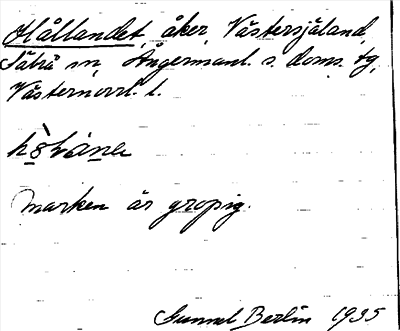 Hållandet, åker, Västersjäland,
Sätrå sn, Ångermanl. s. doms. tg,
Västernorrl. l.
Marken är gropig.
Gunnel Berlin 1935